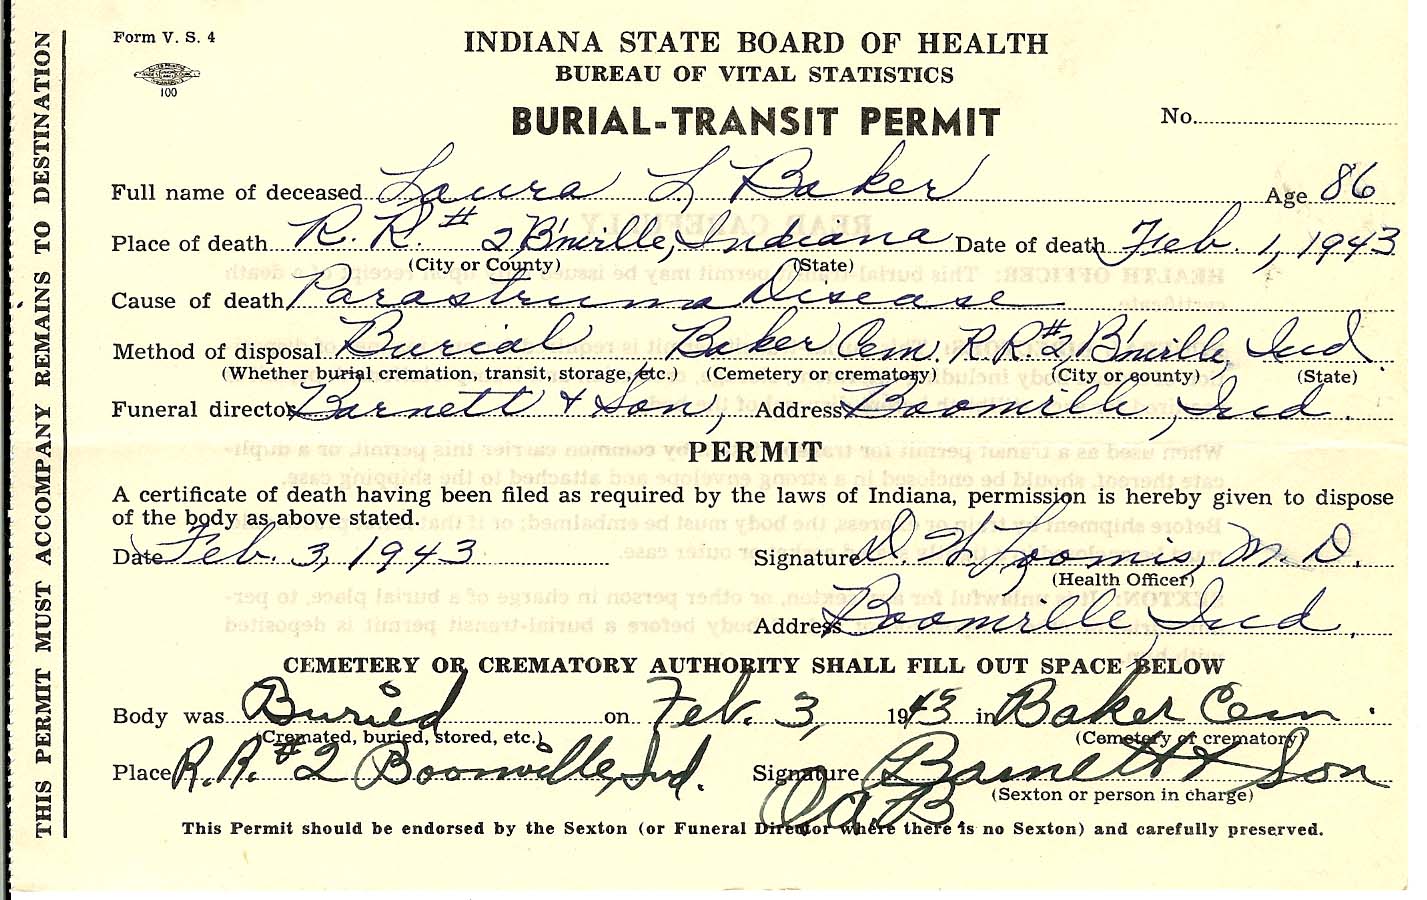 Form V. S. 4
100
INDIANA STATE BOARD OF HEALTH
BUREAU OF VITAL STATISTICS
BURIAL-TRANSIT PERMIT
No.
Full name of deceased Laura L. Baker Age 86
Place of death R. R. # 2 B'nville, Indiana Date of death Feb. 1, 1943
(City or County) (State)
Cause of death Disease
Method of disposal Burial Baker Cem. R. R. # 2, B'nville Ind
(Whether burial cremation, transit, storage, etc.) (Cemetery or crematory) (City or county) (State)
Funeral director Barnett & Son, Address Boonville, Ind.
PERMIT
A certificate of death having been filed as required by the laws of Indiana, permission is hereby given to dispose
of the body as above stated.
Date Feb. 3, 1943 Signature D. W. Loomis, M. D.
(Health Officer)
Address Boonville, Ind.
CEMETERY OR CREMATORY AUTHORITY SHALL FILL OUT SPACE BELOW
Body was Buried on Feb. 3, 1943 in Baker Cem.
(Cremated, buried, stored, etc.) (Cemetery of crematory)
Place R. R. # 2 Boonville, Ind. Signature Barnett & Son
(Sexton or person in charge)
OAB
This Permit should be endorsed by the Sexton (or Funeral Director where there is no Sexton) and carefully preserved.
THIS PERMIT MUST ACCOMPANY REMAINS TO DESTINATION